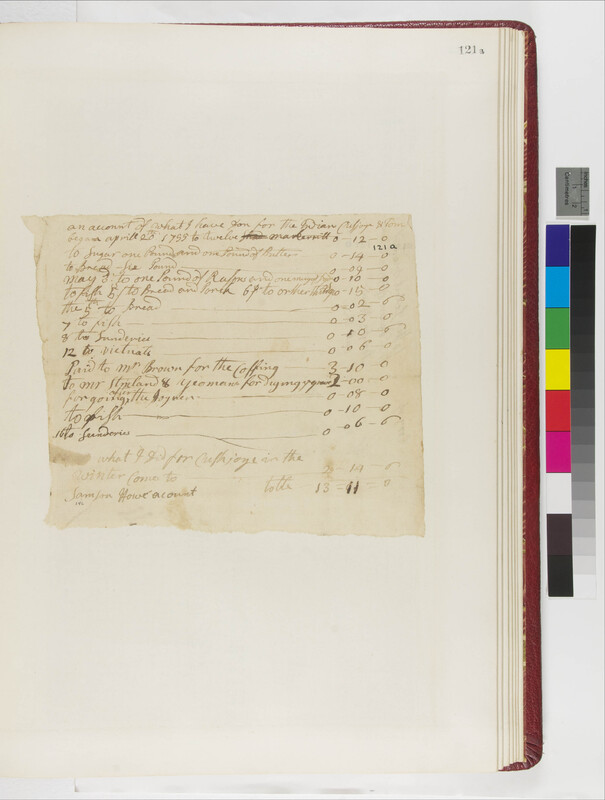 121a
an account of what I have don for the Indian Cusjoye &
began aprill 2d 1755 to twelve markerritt 0 - 12 - 0
121a
to Sugar one Pound and one Pound of Butter 0 - 14 - 0
to Bread Pound 0 - 09 - 0
may 3d to one Pound of Rasons and 0 - 10 - 0
to fish to Bread and Porck to other things 0 - 15 - 0
the 5th to Bread 0 - 02 - 6
7 to fish 0 - 03 - 0
8 to Sunderies 0 - 10 - 6
12 to victuals 0 - 06 - 0
Paid to mr Brown for the Coffing 3 - 10 - 0
to mr & yeomans for diging 2 - 00 - 0
for going the 0 - 08 - 0
to fish 0 - 10 - 0
16 to Sunderies 0 - 06 - 6
what I did for Cushjoye in the
winter Comes to 2 - 14 - 6
Samson Howe acount totle 13 - 11 - 0